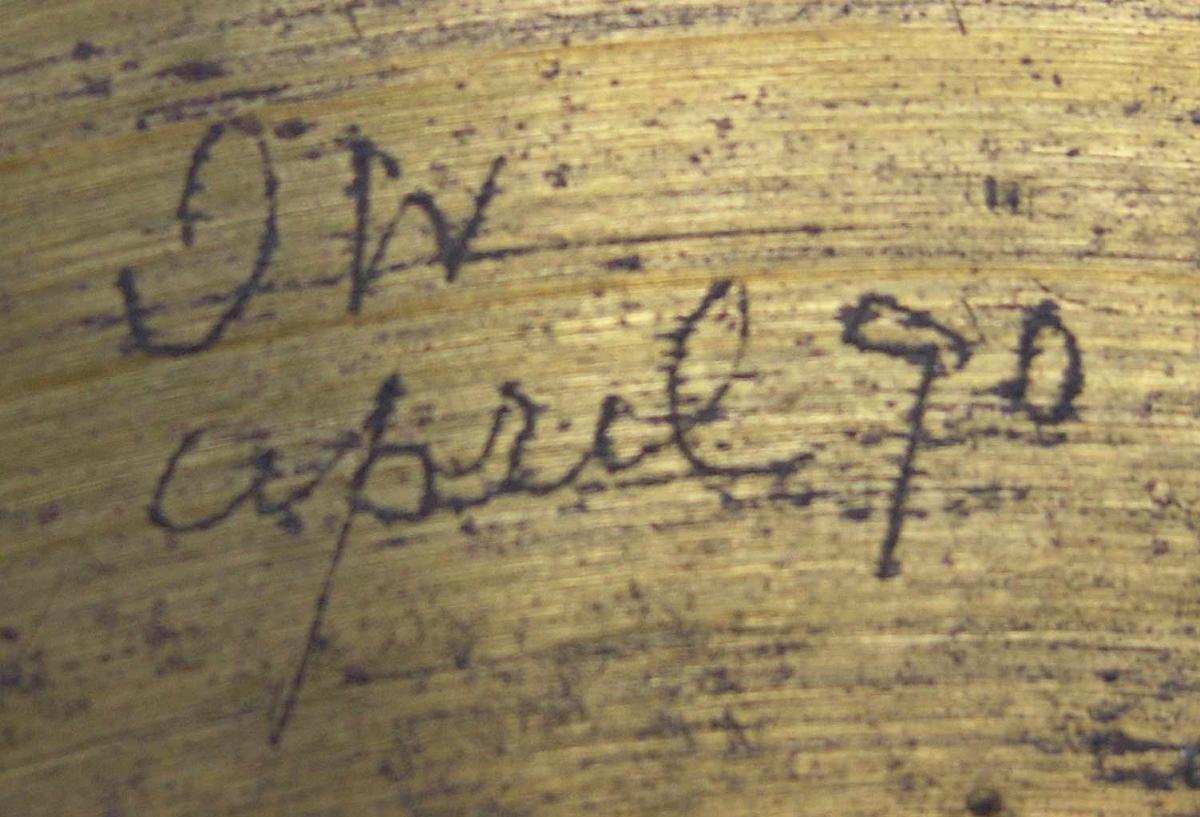 JW
april 90